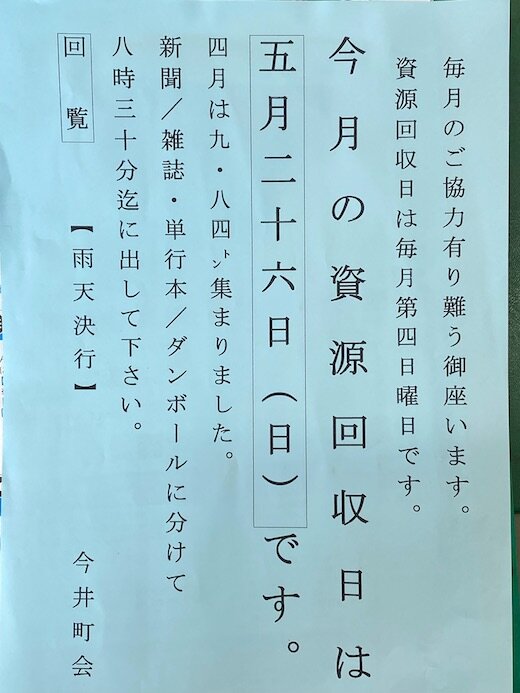 毎月のご協力有り難う御座います。
資源回収日は毎月第四日曜日です。
今月の資源回収日は
五月二十六日（日）です。
四月は九・八四㌧集まりました。
新聞／雑誌・単行本／ダンボールに分けて
八時三十分迄に出して下さい。
回覧
【雨天決行】
今井町会